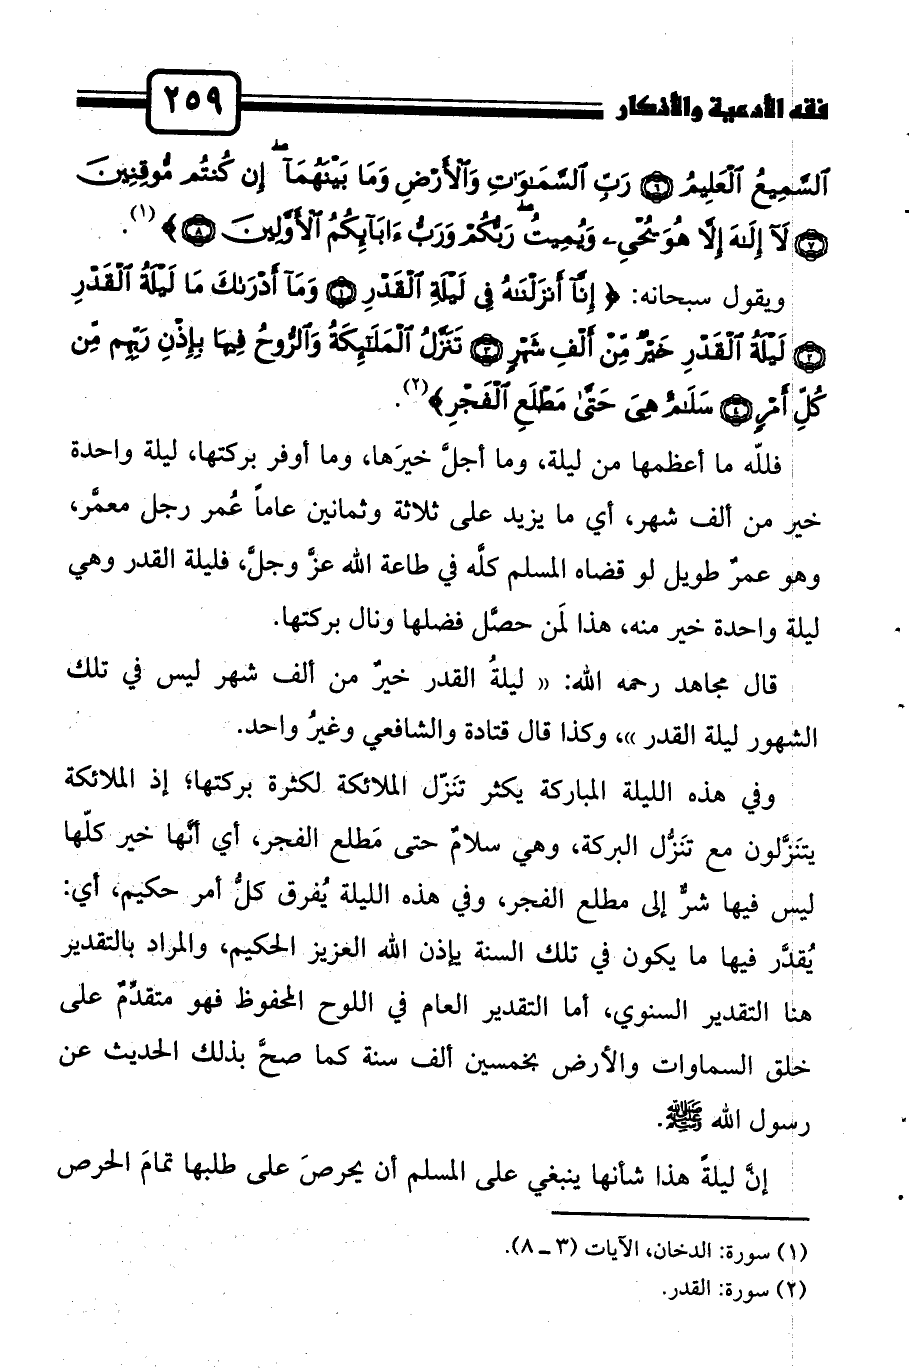 فقه الأدعية والأذكار ٢٥٩
السَّمِيعُ الْعَلِيمُ ﴿٦﴾ رَبِّ السَّمَٰوَٰتِ وَالْأَرْضِ وَمَا بَيْنَهُمَآ ۖ إِن كُنتُم مُّوقِنِينَ
﴿٧﴾ لَآ إِلَٰهَ إِلَّا هُوَ يُحْيِۦ وَيُمِيتُ ۖ رَبُّكُمْ وَرَبُّ ءَابَآئِكُمُ الْأَوَّلِينَ ﴿٨﴾ ﴾(١).
ويقول سبحانه: ﴿ إِنَّآ أَنزَلْنَٰهُ فِي لَيْلَةِ الْقَدْرِ ﴿١﴾ وَمَآ أَدْرَىٰكَ مَا لَيْلَةُ الْقَدْرِ
﴿٢﴾ لَيْلَةُ الْقَدْرِ خَيْرٌ مِّنْ أَلْفِ شَهْرٍ ﴿٣﴾ تَنَزَّلُ الْمَلَٰٓئِكَةُ وَالرُّوحُ فِيهَا بِإِذْنِ رَبِّهِم مِّن
كُلِّ أَمْرٍ ﴿٤﴾ سَلَٰمٌ هِيَ حَتَّىٰ مَطْلَعِ الْفَجْرِ ﴾(٢).
فللّه ما أعظمها من ليلة، وما أجلَّ خيرَها، وما أوفر بركتها، ليلة واحدة
خير من ألف شهر، أي ما يزيد على ثلاثة وثمانين عاماً عُمر رجل معمَّر،
وهو عمرٌ طويل لو قضاه المسلم كلَّه في طاعة الله عزَّ وجلَّ، فليلة القدر وهي
ليلة واحدة خير منه، هذا لمَن حصَّل فضلها ونال بركتها.
قال مجاهد رحمه الله: « ليلةُ القدر خيرٌ من ألف شهر ليس في تلك
الشهور ليلة القدر »، وكذا قال قتادة والشافعي وغيرُ واحد.
وفي هذه الليلة المباركة يكثر تنَزّل الملائكة لكثرة بركتها؛ إذ الملائكة
يتنَزَّلون مع تنَزُّل البركة، وهي سلامٌ حتى مَطلع الفجر، أي أنَّها خير كلّها
ليس فيها شرٌّ إلى مطلع الفجر، وفي هذه الليلة يُفرق كلُّ أمر حكيم، أي:
يُقدَّر فيها ما يكون في تلك السنة بإذن الله العزيز الحكيم، والمراد بالتقدير
هنا التقدير السنوي، أما التقدير العام في اللوح المحفوظ فهو متقدِّمٌ على
خلق السماوات والأرض بخمسين ألف سنة كما صحَّ بذلك الحديث عن
رسول الله ﷺ.
إنَّ ليلةً هذا شأنها ينبغي على المسلم أن يحرصَ على طلبها تمامَ الحرص
(١) سورة: الدخان، الآيات (٣ ـ ٨).
(٢) سورة: القدر.